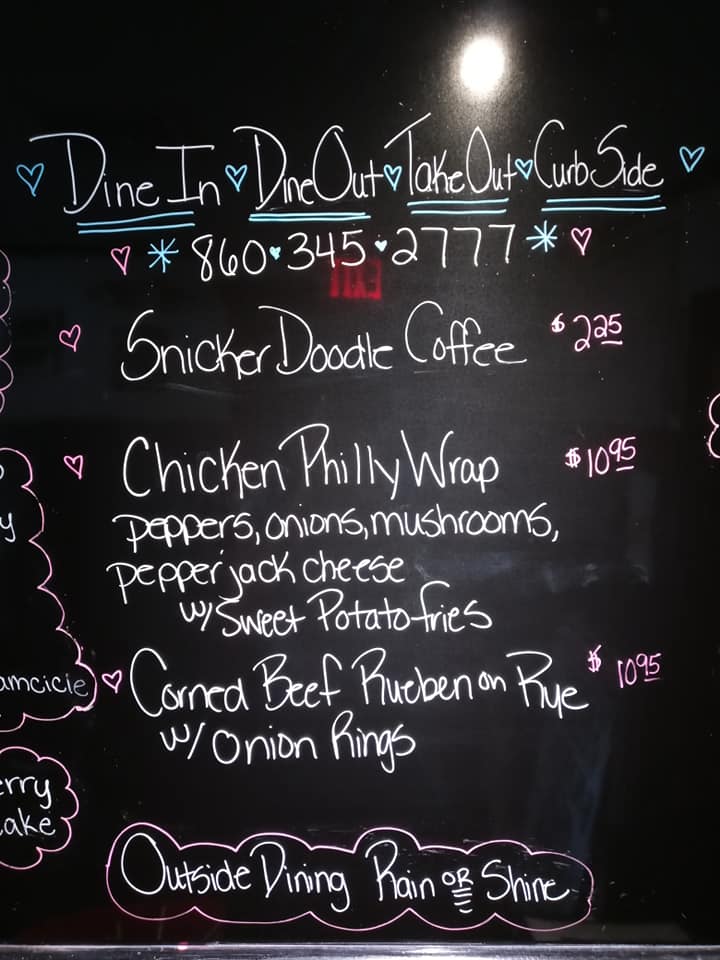 Dine In Dine Out Take Out Curb Side
860 345 2777
Snicker Doodle Coffee $2.25
Chicken Philly Wrap $10.95
peppers, onions, mushrooms,
pepper jack cheese
w/ Sweet Potato fries
Corned Beef Rueben on Rye $10.95
w/ Onion Rings
amcicle
erry
ake
Outside Dining Rain OR Shine